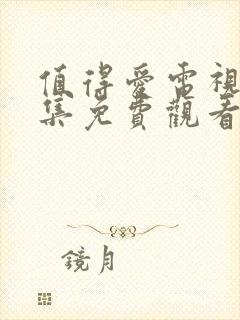 值得愛電視
集免費觀看
鏡月